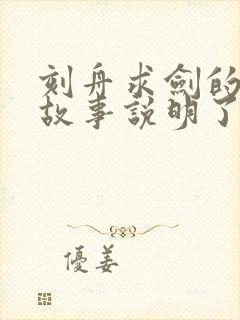 刻舟求劍的
故事説明了
優姜